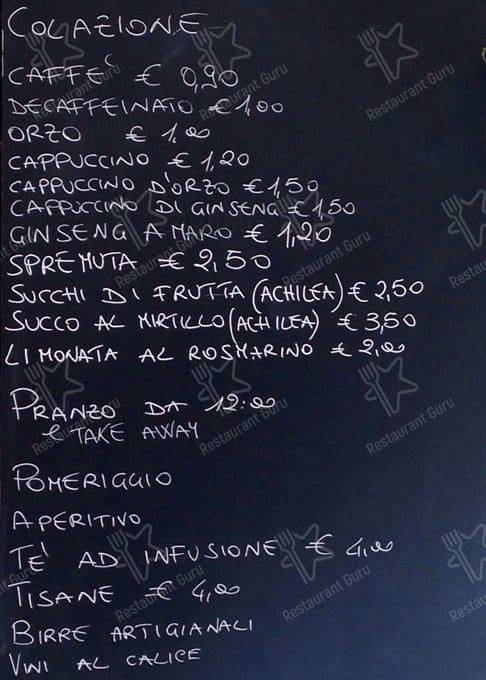 COLAZIONE
CAFFE' € 0,90
DECAFFEINATO € 1,00
ORZO € 1,00
CAPPUCCINO € 1,20
CAPPUCCINO D'ORZO € 1,50
CAPPUCCINO DI GINSENG € 1,50
GINSENG AMARO € 1,20
SPREMUTA € 2,50
SUCCHI DI FRUTTA (ACHILEA) € 2,50
SUCCO AL MIRTILLO (ACHILEA) € 3,50
LIMONATA AL ROSMARINO € 2,00
PRANZO DA 12:00
e TAKE AWAY
POMERIGGIO
APERITIVO
TE' AD INFUSIONE € 4,00
TISANE € 4,00
BIRRE ARTIGIANALI
VINI AL CALICE
Restaurant Guru